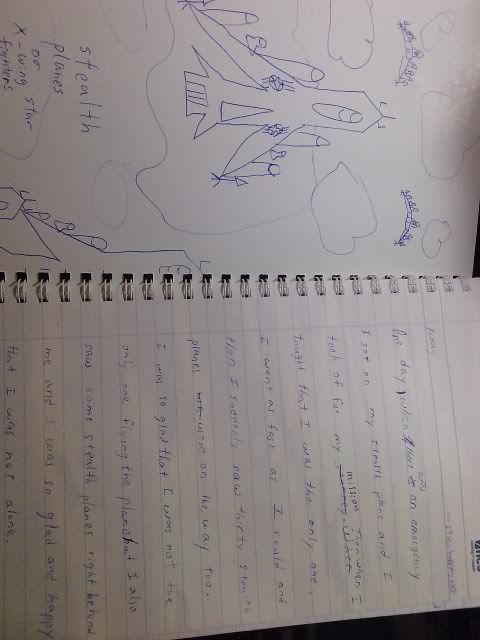 stealth
planes
or
X-wing star
fighters
One day, when there was an emergency
I sat on my stealth plane and I
took of for my mission. Then when I
tought that I was the only one,
I went as fast as I could and
then I suddenly saw thirty stealth
planes were on the way too.
I was so glad that I was not the
only one flying the plane but I also
saw some stealth planes right behind
me and I was so glad and happy
that I was not alone.